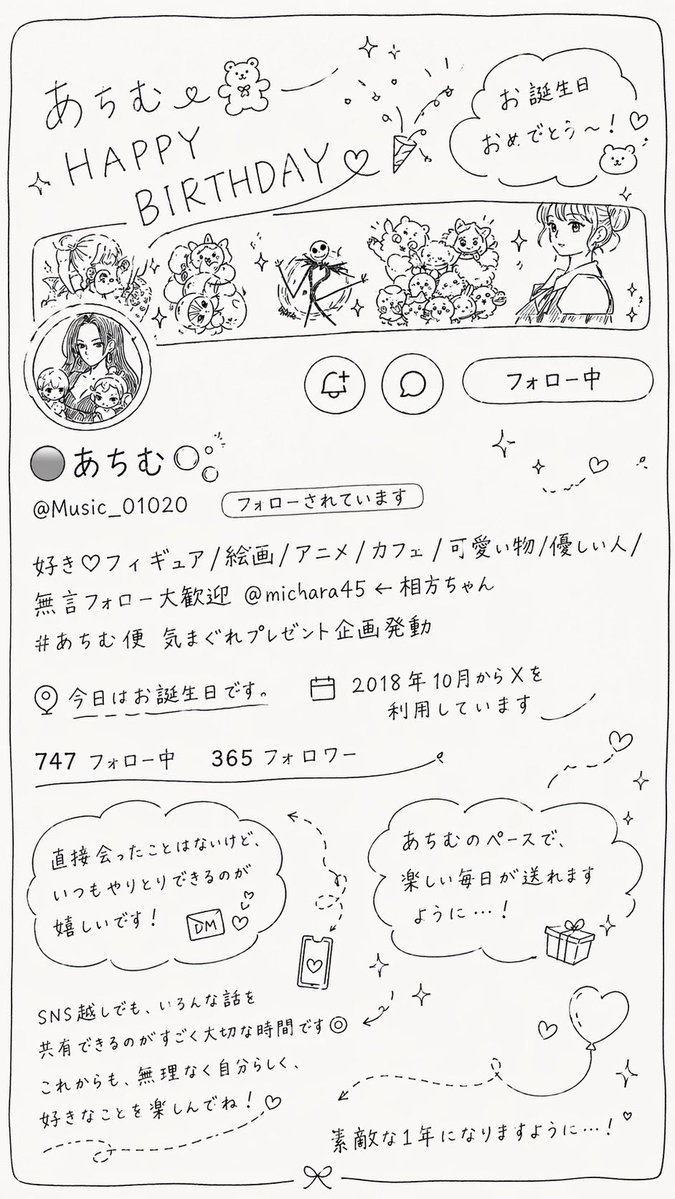 あちむ
HAPPY
BIRTHDAY
お誕生日
おめでとう〜!
フォロー中
あちむ
@Music_01020 フォローされています
好き♡フィギュア/絵画/アニメ/カフェ/可愛い物/優しい人/
無言フォロー大歓迎 @michara45 ← 相方ちゃん
#あちむ便 気まぐれプレゼント企画発動
今日はお誕生日です。
2018年10月からXを
利用しています
747 フォロー中 365 フォロワー
直接会ったことはないけど、
いつもやりとりできるのが
嬉しいです!
DM
あちむのペースで、
楽しい毎日が送れます
ように…!
SNS越しでも、いろんな話を
共有できるのがすごく大切な時間です◎
これからも、無理なく自分らしく、
好きなことを楽しんでね!♡
素敵な1年になりますように…!♡